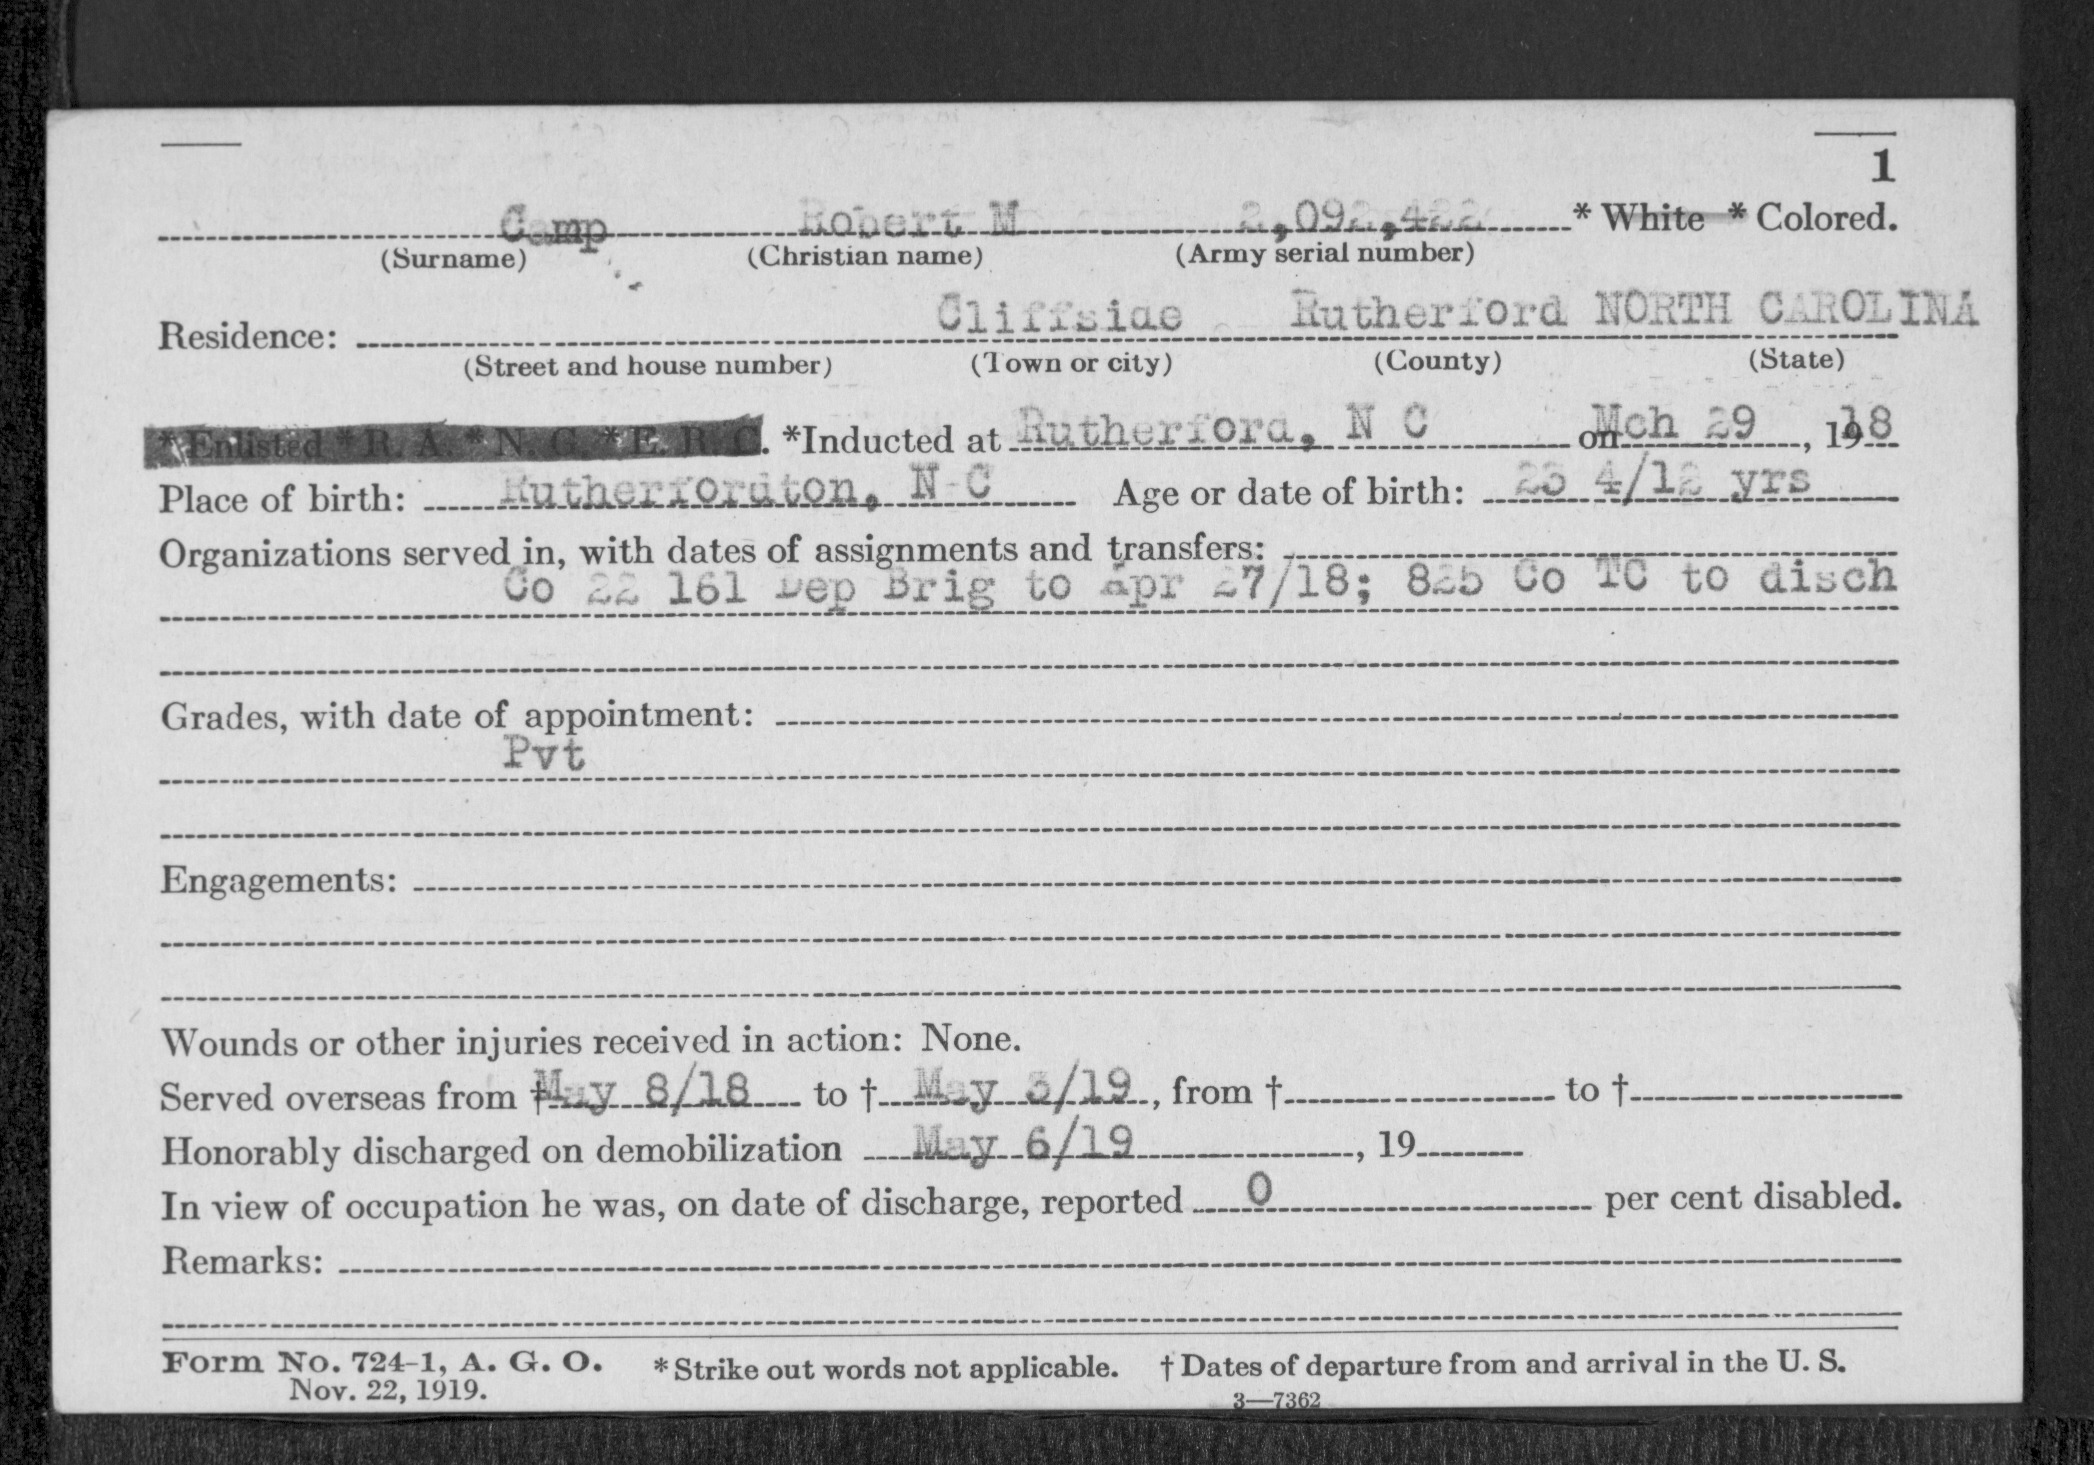 1
Camp Robert M 2,092,422 * White * Colored.
(Surname) (Christian name) (Army serial number)
Residence: Cliffside Rutherford NORTH CAROLINA
(Street and house number) (Town or city) (County) (State)
*Enlisted *R. A. *N. G. *E. R. C. *Inducted at Rutherford, N C on Mch 29, 1918
Place of birth: Rutherfordton, N C Age or date of birth: 23 4/12 yrs
Organizations served in, with dates of assignments and transfers:
Co 22 161 Dep Brig to Apr 27/18; 825 Co TC to disch
Grades, with date of appointment:
Pvt
Engagements:
Wounds or other injuries received in action: None.
Served overseas from † May 8/18 to † May 3/19, from † to †
Honorably discharged on demobilization May 6/19, 19
In view of occupation he was, on date of discharge, reported 0 per cent disabled.
Remarks:
Form No. 724-1, A. G. O. *Strike out words not applicable. † Dates of departure from and arrival in the U. S.
Nov. 22, 1919. 3—7362